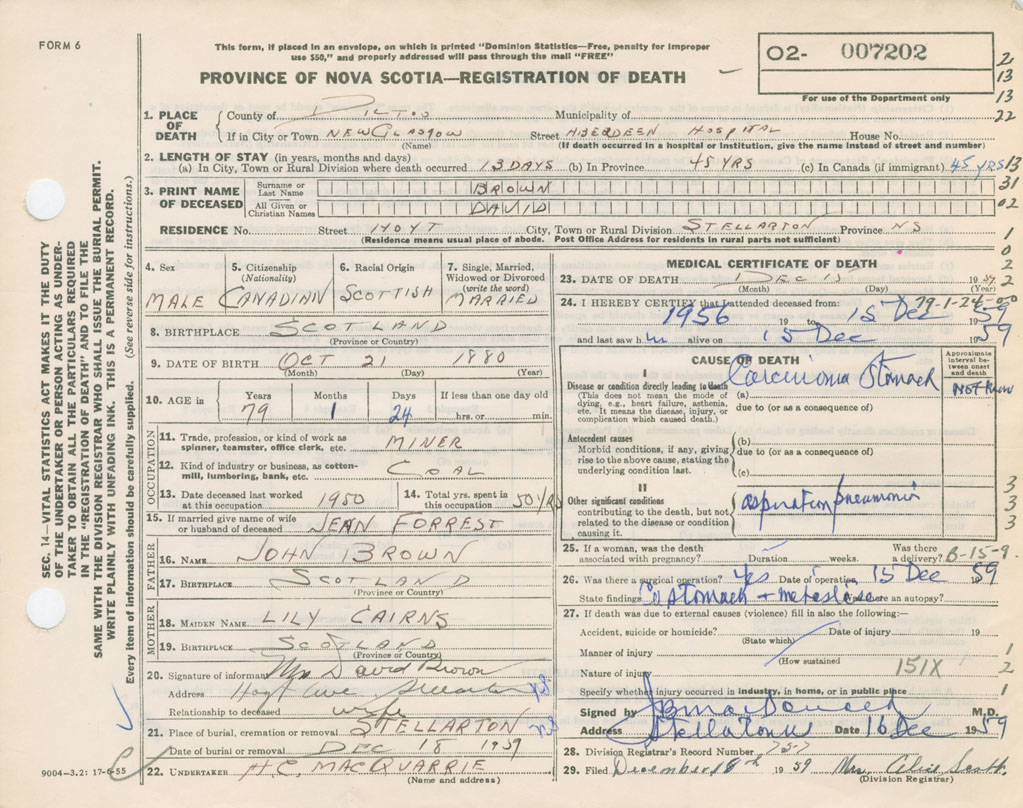 FORM 6
This form, if placed in an envelope, on which is printed "Dominion Statistics—Free, penalty for improper
use $50," and properly addressed will pass through the mail "FREE"
PROVINCE OF NOVA SCOTIA—REGISTRATION OF DEATH
O2- 007202
For use of the Department only
2
13
13
22
13
31
02
1
0
2
2
1. PLACE OF DEATH
County of PICTOU Municipality of
If in City or Town NEW GLASGOW Street ABERDEEN HOSPITAL House No.
(Name) (If death occurred in a hospital or institution, give the name instead of street and number)
2. LENGTH OF STAY (in years, months and days)
(a) In City, Town or Rural Division where death occurred 13 DAYS (b) In Province 45 YRS (c) In Canada (if immigrant) 45 YRS
3. PRINT NAME OF DECEASED
Surname or Last Name BROWN
All Given or Christian Names DAVID
RESIDENCE No. Street HOYT City, Town or Rural Division STELLARTON Province NS
(Residence means usual place of abode. Post Office Address for residents in rural parts not sufficient)
4. Sex
MALE
5. Citizenship
(Nationality)
CANADINN
6. Racial Origin
SCOTTISH
7. Single, Married, Widowed or Divorced
(write the word)
MARRIED
8. BIRTHPLACE SCOTLAND
(Province or Country)
9. DATE OF BIRTH OCT 21 1880
(Month) (Day) (Year)
10. AGE in Years Months Days If less than one day old
79 1 24 hrs. or min.
OCCUPATION
11. Trade, profession, or kind of work as
spinner, teamster, office clerk, etc. MINER
12. Kind of industry or business, as cotton-
mill, lumbering, bank, etc. COAL
13. Date deceased last worked
at this occupation 1950
14. Total yrs. spent in
this occupation 50 YRS
15. If married give name of wife
or husband of deceased JEAN FORREST
FATHER
16. NAME JOHN BROWN
17. BIRTHPLACE SCOTLAND
(Province or Country)
MOTHER
18. MAIDEN NAME LILY CAIRNS
19. BIRTHPLACE SCOTLAND
(Province or Country)
20. Signature of informant Mrs David Brown
Address Hoyt Ave Stellarton NS
Relationship to deceased wife
21. Place of burial, cremation or removal STELLARTON NS
Date of burial or removal DEC 18 1959
22. UNDERTAKER H.C. MACQUARRIE
(Name and address)
MEDICAL CERTIFICATE OF DEATH
23. DATE OF DEATH DEC 15 1959
(Month) (Day) (Year)
79-1-24-00
24. I HEREBY CERTIFY that I attended deceased from:
1956 19 to 15 Dec 1959
and last saw him alive on 15 Dec 1959
CAUSE OF DEATH
Approximate interval between onset and death
I
Disease or condition directly leading to death
(This does not mean the mode of
dying, e.g., heart failure, asthenia,
etc. It means the disease, injury, or
complication which caused death.)
(a) Carcinoma Stomach Not Know
due to (or as a consequence of)
Antecedent causes
Morbid conditions, if any, giving
rise to the above cause, stating the
underlying condition last.
(b)
due to (or as a consequence of)
(c)
II
Other significant conditions
contributing to the death, but not
related to the disease or condition
causing it.
aspiration pneumonia
3
3
3
25. If a woman, was the death
associated with pregnancy? Duration weeks. Was there a delivery?
B-15-9
26. Was there a surgical operation? Yes Date of operation 15 Dec 1959
State findings Ca stomach + Was there an autopsy?
27. If death was due to external causes (violence) fill in also the following:—
Accident, suicide or homicide? Date of injury 19
(State which)
Manner of injury
(How sustained
Nature of injury 151X
1
2
1
Specify whether injury occurred in industry, in home, or in public place
Signed by M.D.
Address Stellarton NS Date 16 Dec 1959
28. Division Registrar's Record Number 757
29. Filed December 18th 1959 Mrs. Alice Scott
(Division Registrar)
SEC. 14—VITAL STATISTICS ACT MAKES IT THE DUTY
OF THE UNDERTAKER OR PERSON ACTING AS UNDER-
TAKER TO OBTAIN ALL THE PARTICULARS REQUIRED
IN THE "REGISTRATION OF DEATH" AND TO FILE THE
SAME WITH THE DIVISION REGISTRAR WHO SHALL ISSUE THE BURIAL PERMIT.
WRITE PLAINLY WITH UNFADING INK. THIS IS A PERMANENT RECORD.
Every item of information should be carefully supplied. (See reverse side for instructions.)
9004-3.2: 17-6-55